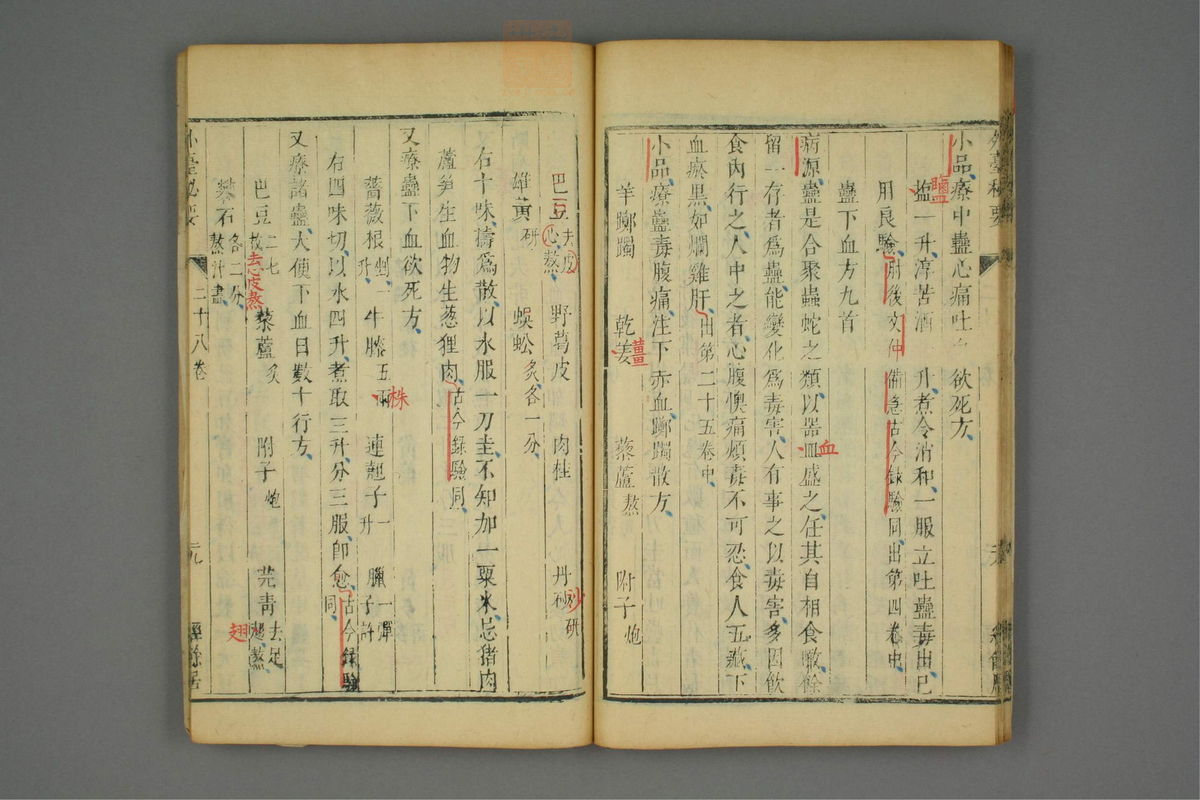 小品療中蠱心痛吐 欲死方
鹽
塩一升淳苦酒一升煮令消和一服立吐蠱毒出已
用良驗肘後文仲備急古今錄驗同出第四卷中
蠱下血方九首
病源蠱是合聚蟲蛇之類以器血盛之任其自相食噉餘
血
留一存者為蠱能變化為毒害人有事之以毒害多因飲
食內行之人中之者心腹懊痛煩毒不可忍食人五藏下
血瘀黑如爛雞肝出第二十五卷中
小品療蠱毒腹痛注下赤血躑躅散方
羊躑躅 乾姜 藜蘆熬 附子炮
薑
巴豆去皮心熬 野葛皮 肉桂 丹砂研
砂
雄黄研 蜈蚣炙各一分
右十味擣為散以水服一刀圭不知加一粟米忌猪肉
蘆笋生血物生葱狸肉古今錄驗同
又療蠱下血欲死方
薔薇根剉一升 牛膝五兩 連翹子一升 臘一彈子許
株
右四味切以水四升煮取三升分三服即愈古今錄驗同
又療諸蠱大便下血日數十行方
巴豆二七枚 藜蘆炙 附子炮 芫青去足翅熬
去心皮熬
翅
樊石熬汁盡各二分
外臺秘要
二十八卷